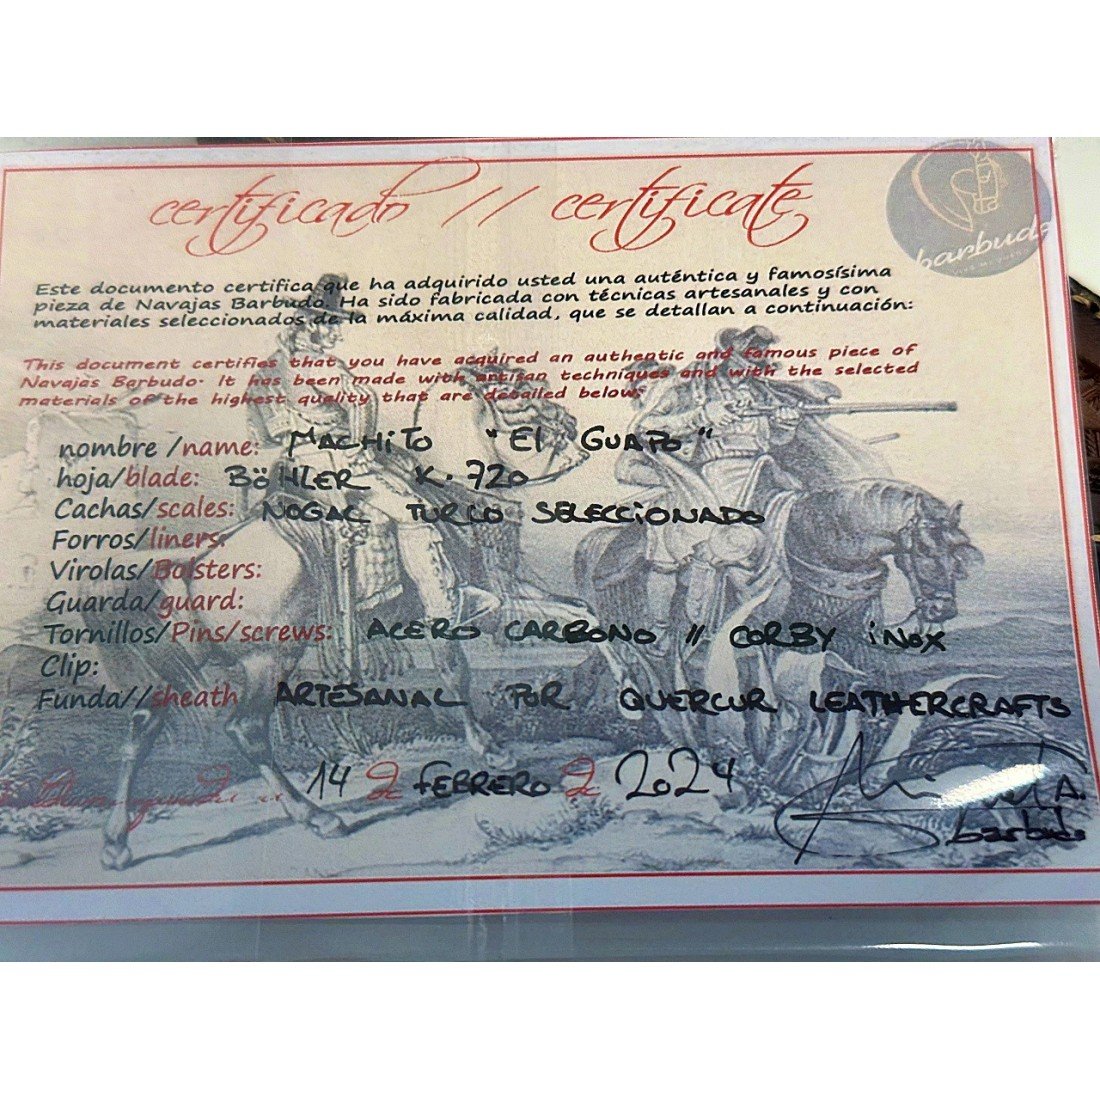 certificado // certificate
barbudo
Este documento certifica que ha adquirido usted una auténtica y famosísima
pieza de Navajas Barbudo. Ha sido fabricada con técnicas artesanales y con
materiales seleccionados de la máxima calidad, que se detallan a continuación:
This document certifies that you have acquired an authentic and famous piece of
Navajas Barbudo. It has been made with artisan techniques and with the selected
materials of the highest quality that are detailed below:
nombre /name: MACHITO "El GUAPO"
hoja/blade: BÖHLER K. 720
Cachas/scales: NOGAL TURCO SELECCIONADO
Forros/liners:
Virolas/Bolsters:
Guarda/guard:
Tornillos/Pins/screws: ACERO CARBONO // CORBY iNOX
Clip:
Funda//sheath ARTESANAL POR QUERCUR LEATHERCRAFTS
14 de FEBRERO de 2024
A.
barbudo